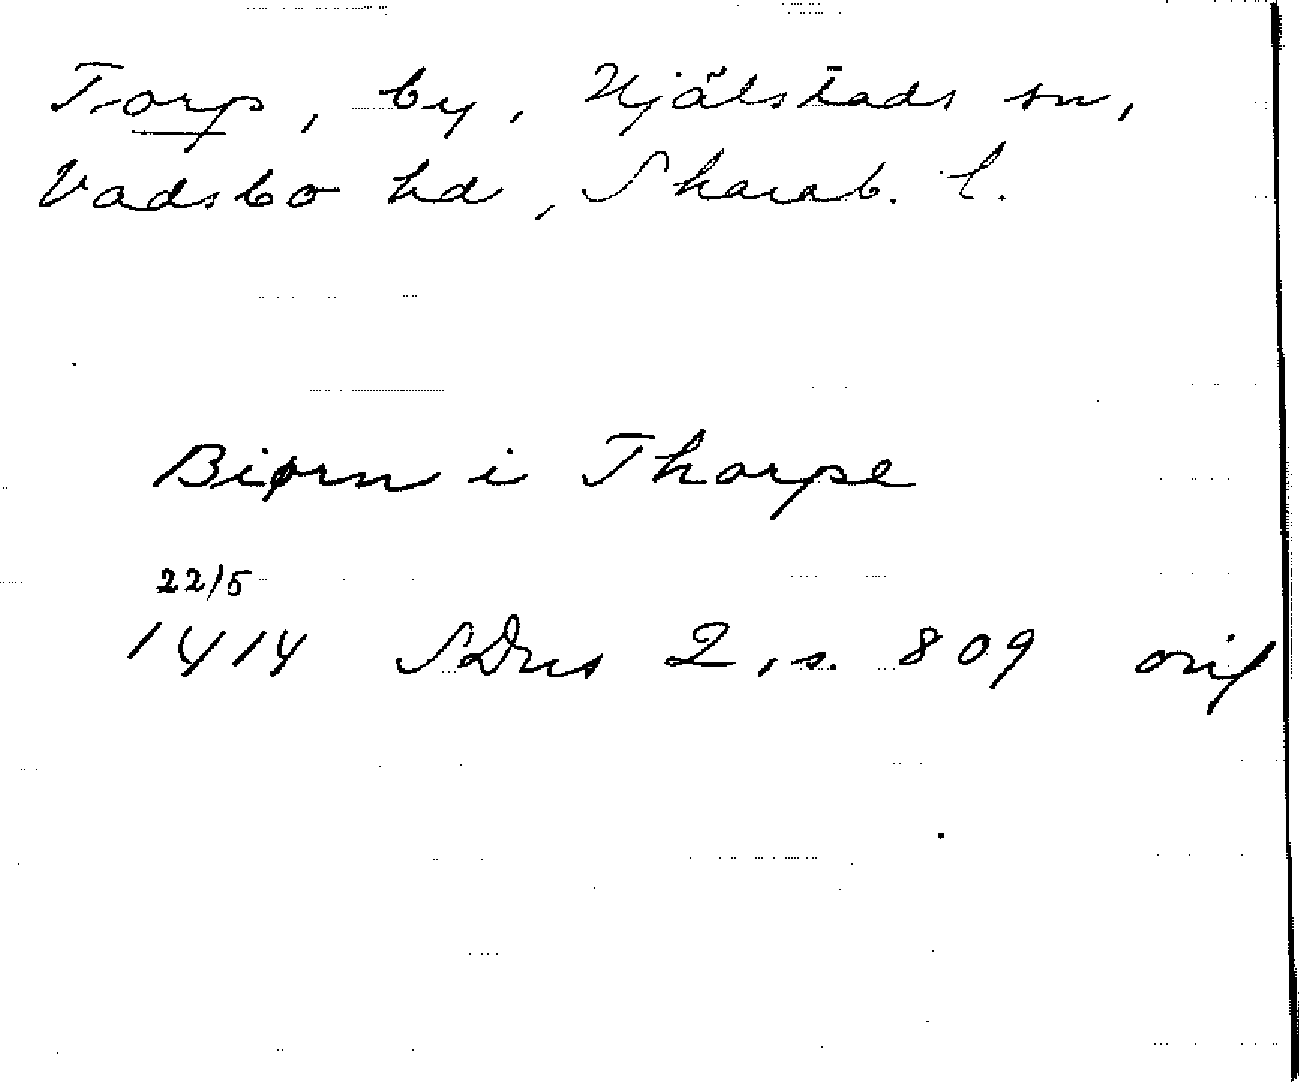 Torp, by, Hjälstads sn,
Vadsbo hd, Skarab. l.
Biørn i Thorpe
22/5
1414 SDns 2, s. 809 orig